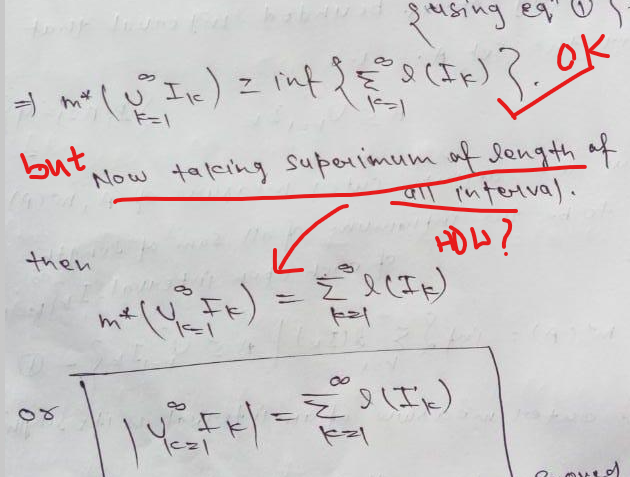 {using eqⁿ ① }
⇒ m*(∪_{k=1}^∞ I_k) = inf {∑_{k=1}^∞ l(I_k)}. OK
but Now taking superimum of length of
all interval.
HOW?
then
m*(∪_{k=1}^∞ I_k) = ∑_{k=1}^∞ l(I_k)
or |∪_{k=1}^∞ I_k| = ∑_{k=1}^∞ l(I_k)